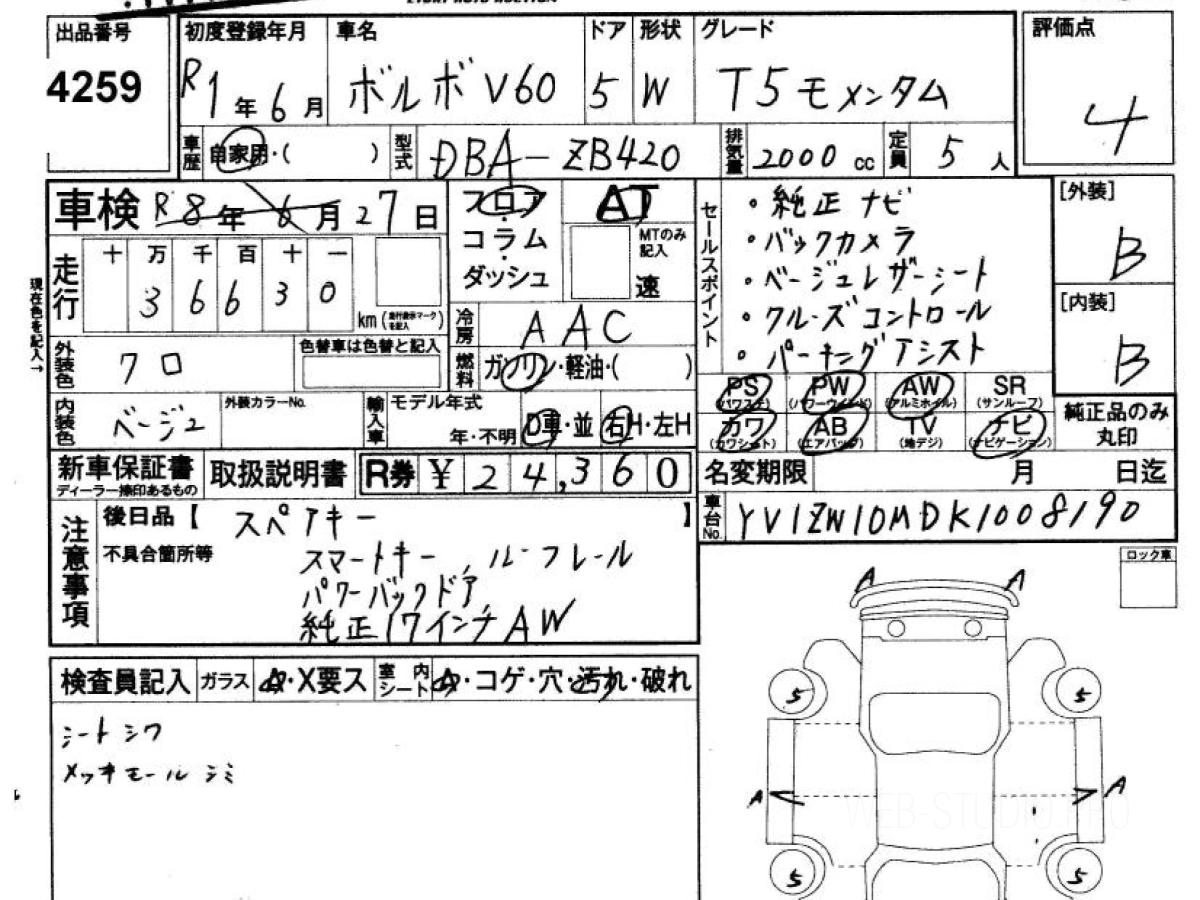 出品番号
4259
初度登録年月 車名 ドア 形状 グレード 評価点
R1年6月 ボルボ V60 5 W T5モメンタム 4
車歴 自家用・( ) 型式 DBA-ZB420 排気量 2000 cc 定員 5 人
車検 R8年6月27日
フロア
コラム
ダッシュ
AT
MTのみ記入
速
走行 十 万 千 百 十 一
3 6 6 3 0
km(走行表示マークを記入)
現在色を記入→
外装色 クロ
色替車は色替と記入
冷房 AAC
燃料 ガソリン・軽油・( )
内装色 ベージュ
外装カラーNo.
輸入車 モデル年式
年・不明 D車・並 右H・左H
セールスポイント
・純正ナビ
・バックカメラ
・ベージュレザーシート
・クルーズコントロール
・パーキングアシスト
[外装]
B
[内装]
B
PS PW AW SR
(パワステ) (パワーウインド) (アルミホイル) (サンルーフ)
カワ AB TV ナビ
(カワシート) (エアバッグ) (地デジ) (ナビゲーション)
純正品のみ
丸印
新車保証書
ディーラー捺印あるもの
取扱説明書
R券 ¥ 24,360
名変期限 月 日迄
車台No. YV1ZW10MDK1008190
注意事項
後日品【 スペアキー 】
不具合箇所等
スマートキー、ルーフレール
パワーバックドア、
純正17インチAW
検査員記入 ガラス A・X要ス 室内シート A・コゲ・穴・汚れ・破れ
シートシワ
メッキモールシミ
ロック車
A A
5 5
A A
5 5
WEB-STUDIO.PRO